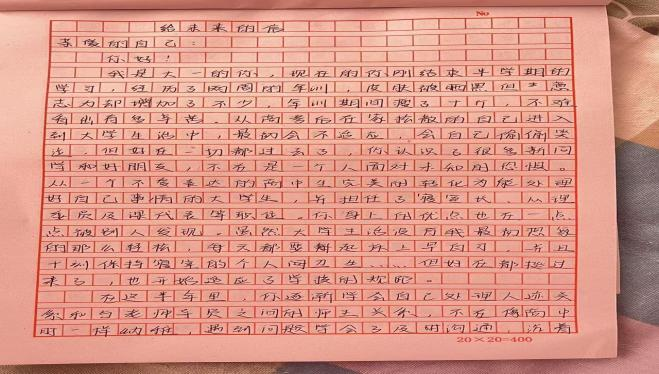 No
给未来的信
亲爱的自己：
你好！
我是大一的你，现在的你刚结束半学期的
学习，经历了两周的军训，皮肤被晒黑但意
志力却增加了不少，军训期间瘦了十斤，不难
看出有多辛苦。从高考后在家松散的自己进入
到大学生活中，最初会不适应，会自己偷偷哭
泣，但好在一切都过去了，你认识了很多新同
学和好朋友，不在是一个人面对未知的恐惧。
从一个不善表达的高中生完美的转化为能处理
好自己事情的大学生，并担任了寝室长、心理
委员及课代表等职位。你身上的优点也在一点
点被别人发现。虽然大学生活没有我最初想象
的那么轻松，每天都要早起床上早自习，并且
时刻保持寝室的个人内卫生……但好在都挺过
来了，也开始适应了学校的规范。
在这半年里，你逐渐学会自己处理人际关
系和与老师车员之间的师生关系，不在像高中
时一样幼稚，遇到问题学会了及时沟通，沉着
20×20=400